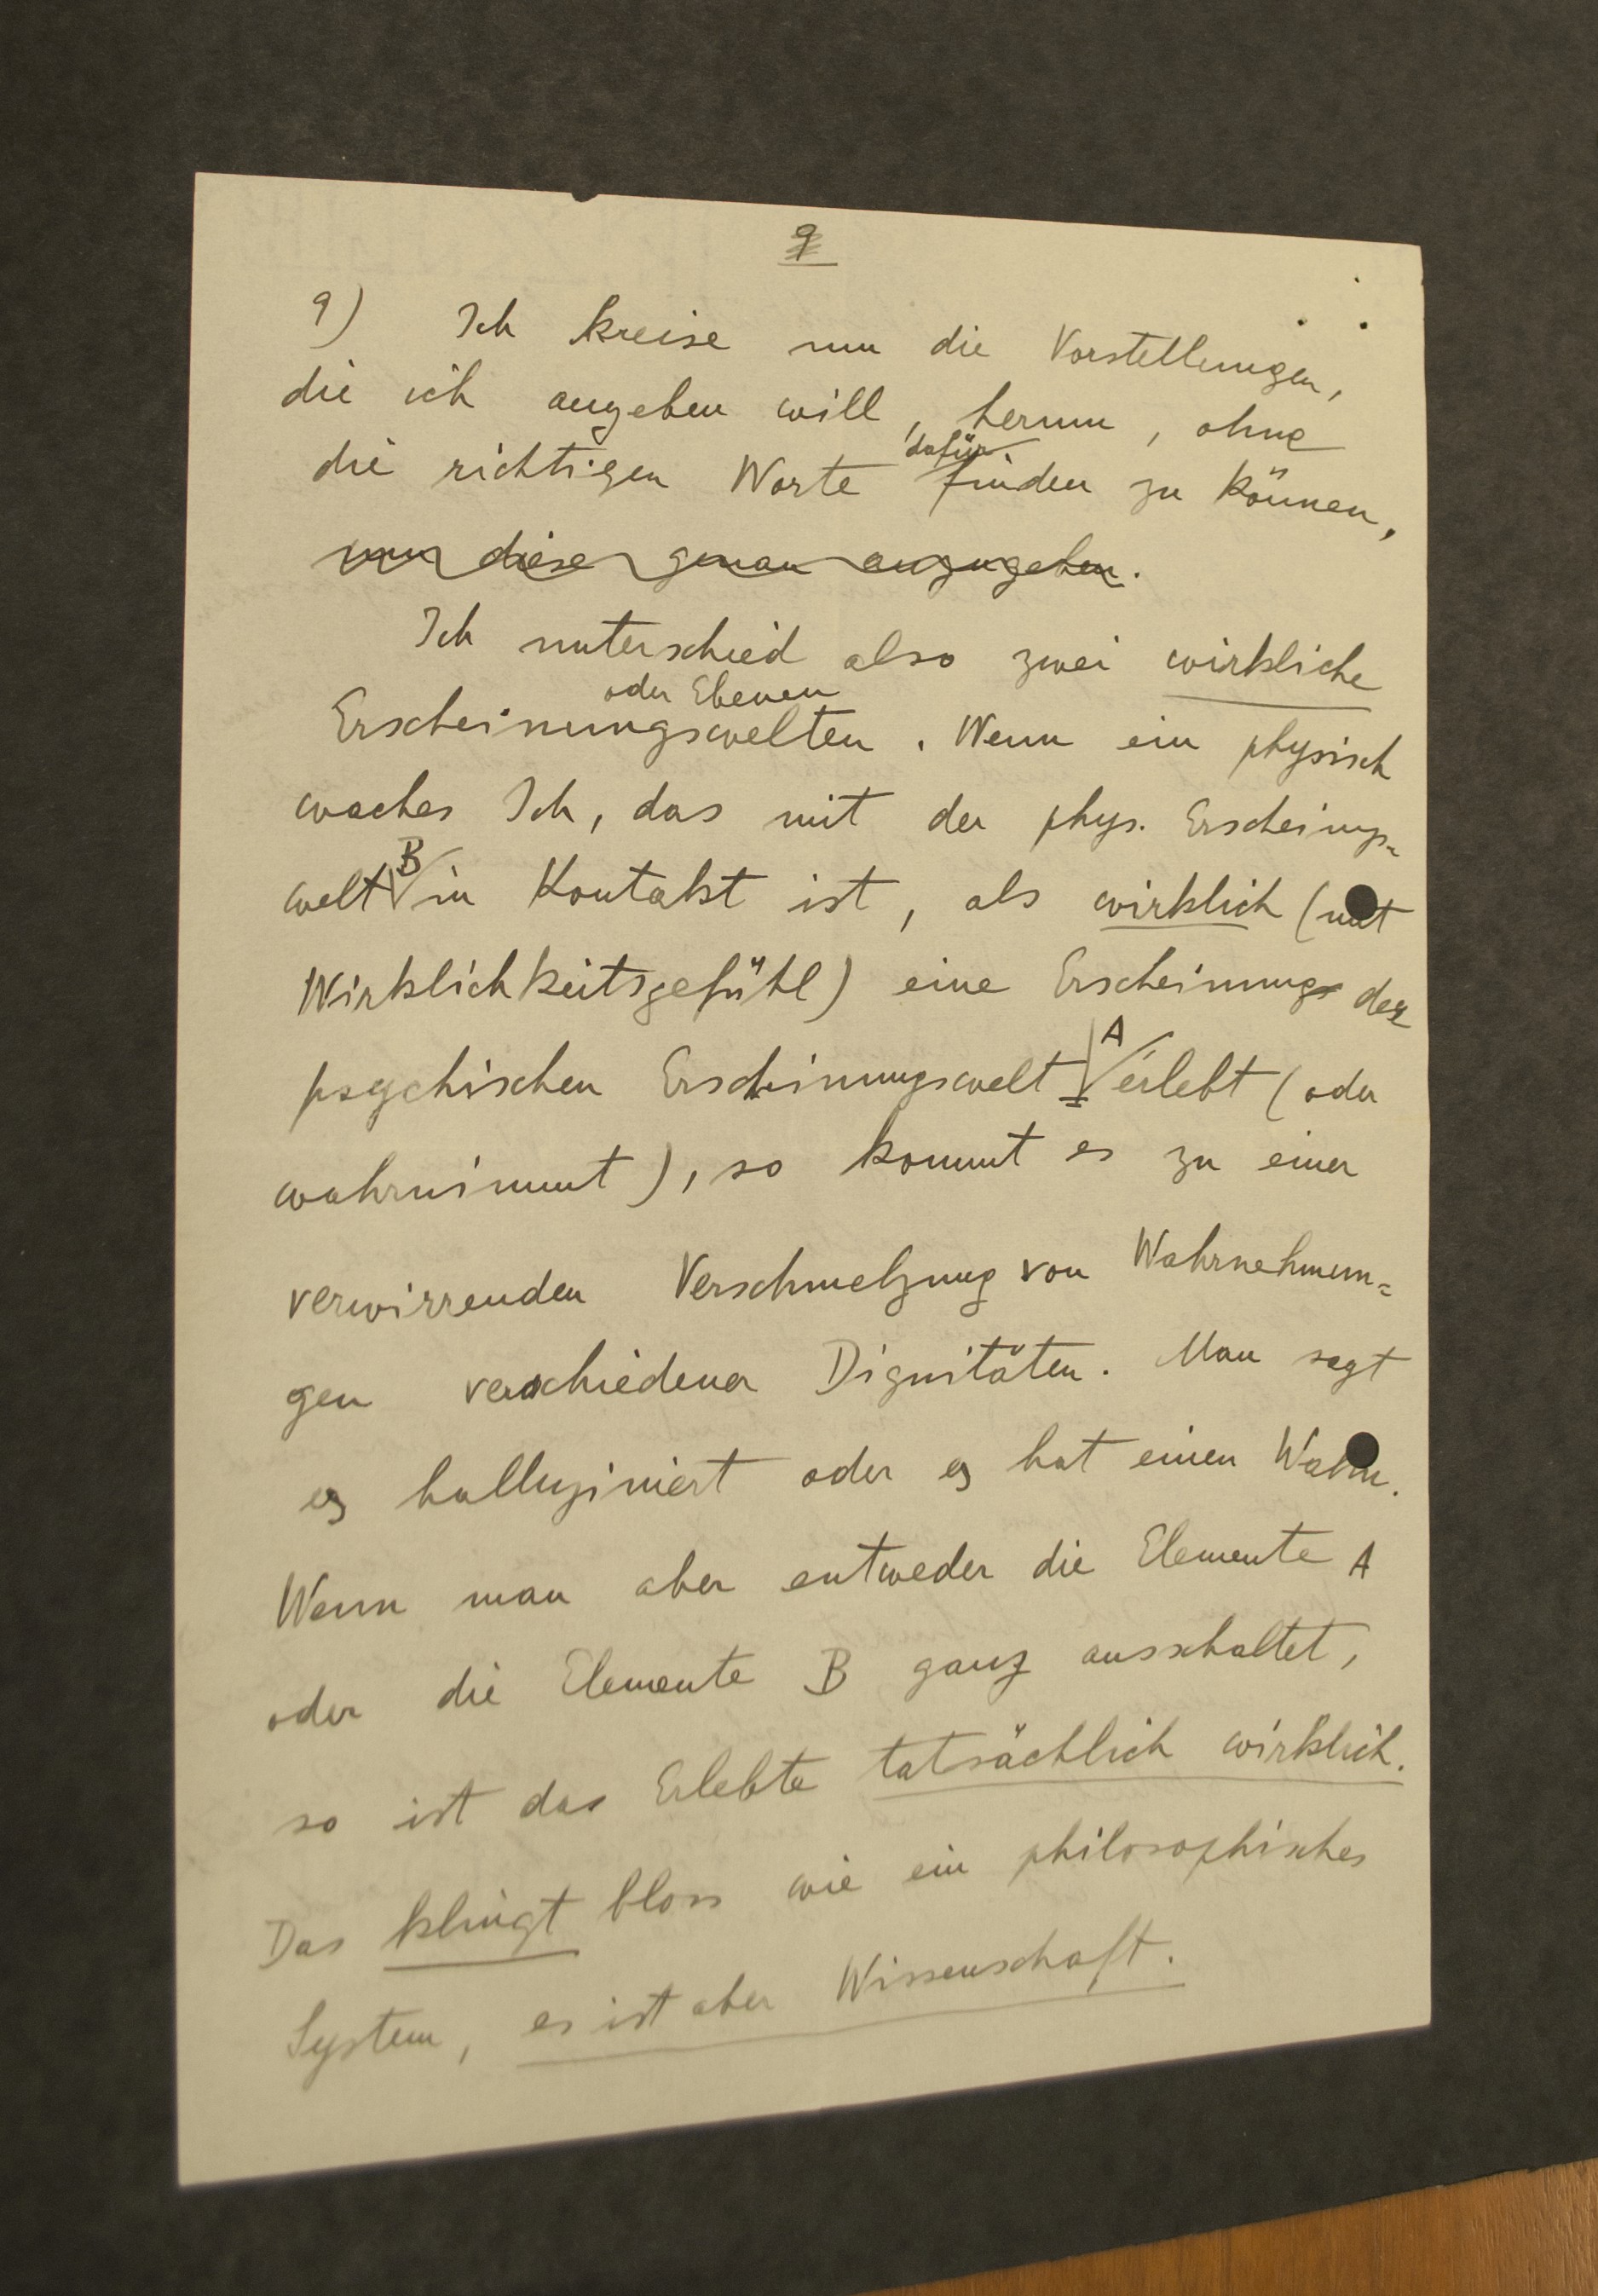 9
9) Ich kreise um die Vorstellungen,
die ich angeben will, herum, ohne
dafür
die richtigen Worte finden zu können,
um diese genau anzugeben.
Ich unterschied also zwei wirkliche
oder Ebenen
Erscheinungswelten. Wenn ein physisch
waches Ich, das mit der phys. Erscheinungs-
welt B in Kontakt ist, als wirklich (mit
Wirklichkeitsgefühl) eine Erscheinung der
psychischen Erscheinungswelt A erlebt (oder
wahrnimmt), so kommt es zu einer
verwirrenden Verschmelzung von Wahrnehmun=
gen verschiedener Dignitäten. Man sagt
es halluziniert oder es hat einen Wahn.
Wenn man aber entweder die Elemente A
oder die Elemente B ganz ausschaltet,
so ist das Erlebte tatsächlich wirklich.
Das klingt bloss wie ein philosophisches
System, es ist aber Wissenschaft.